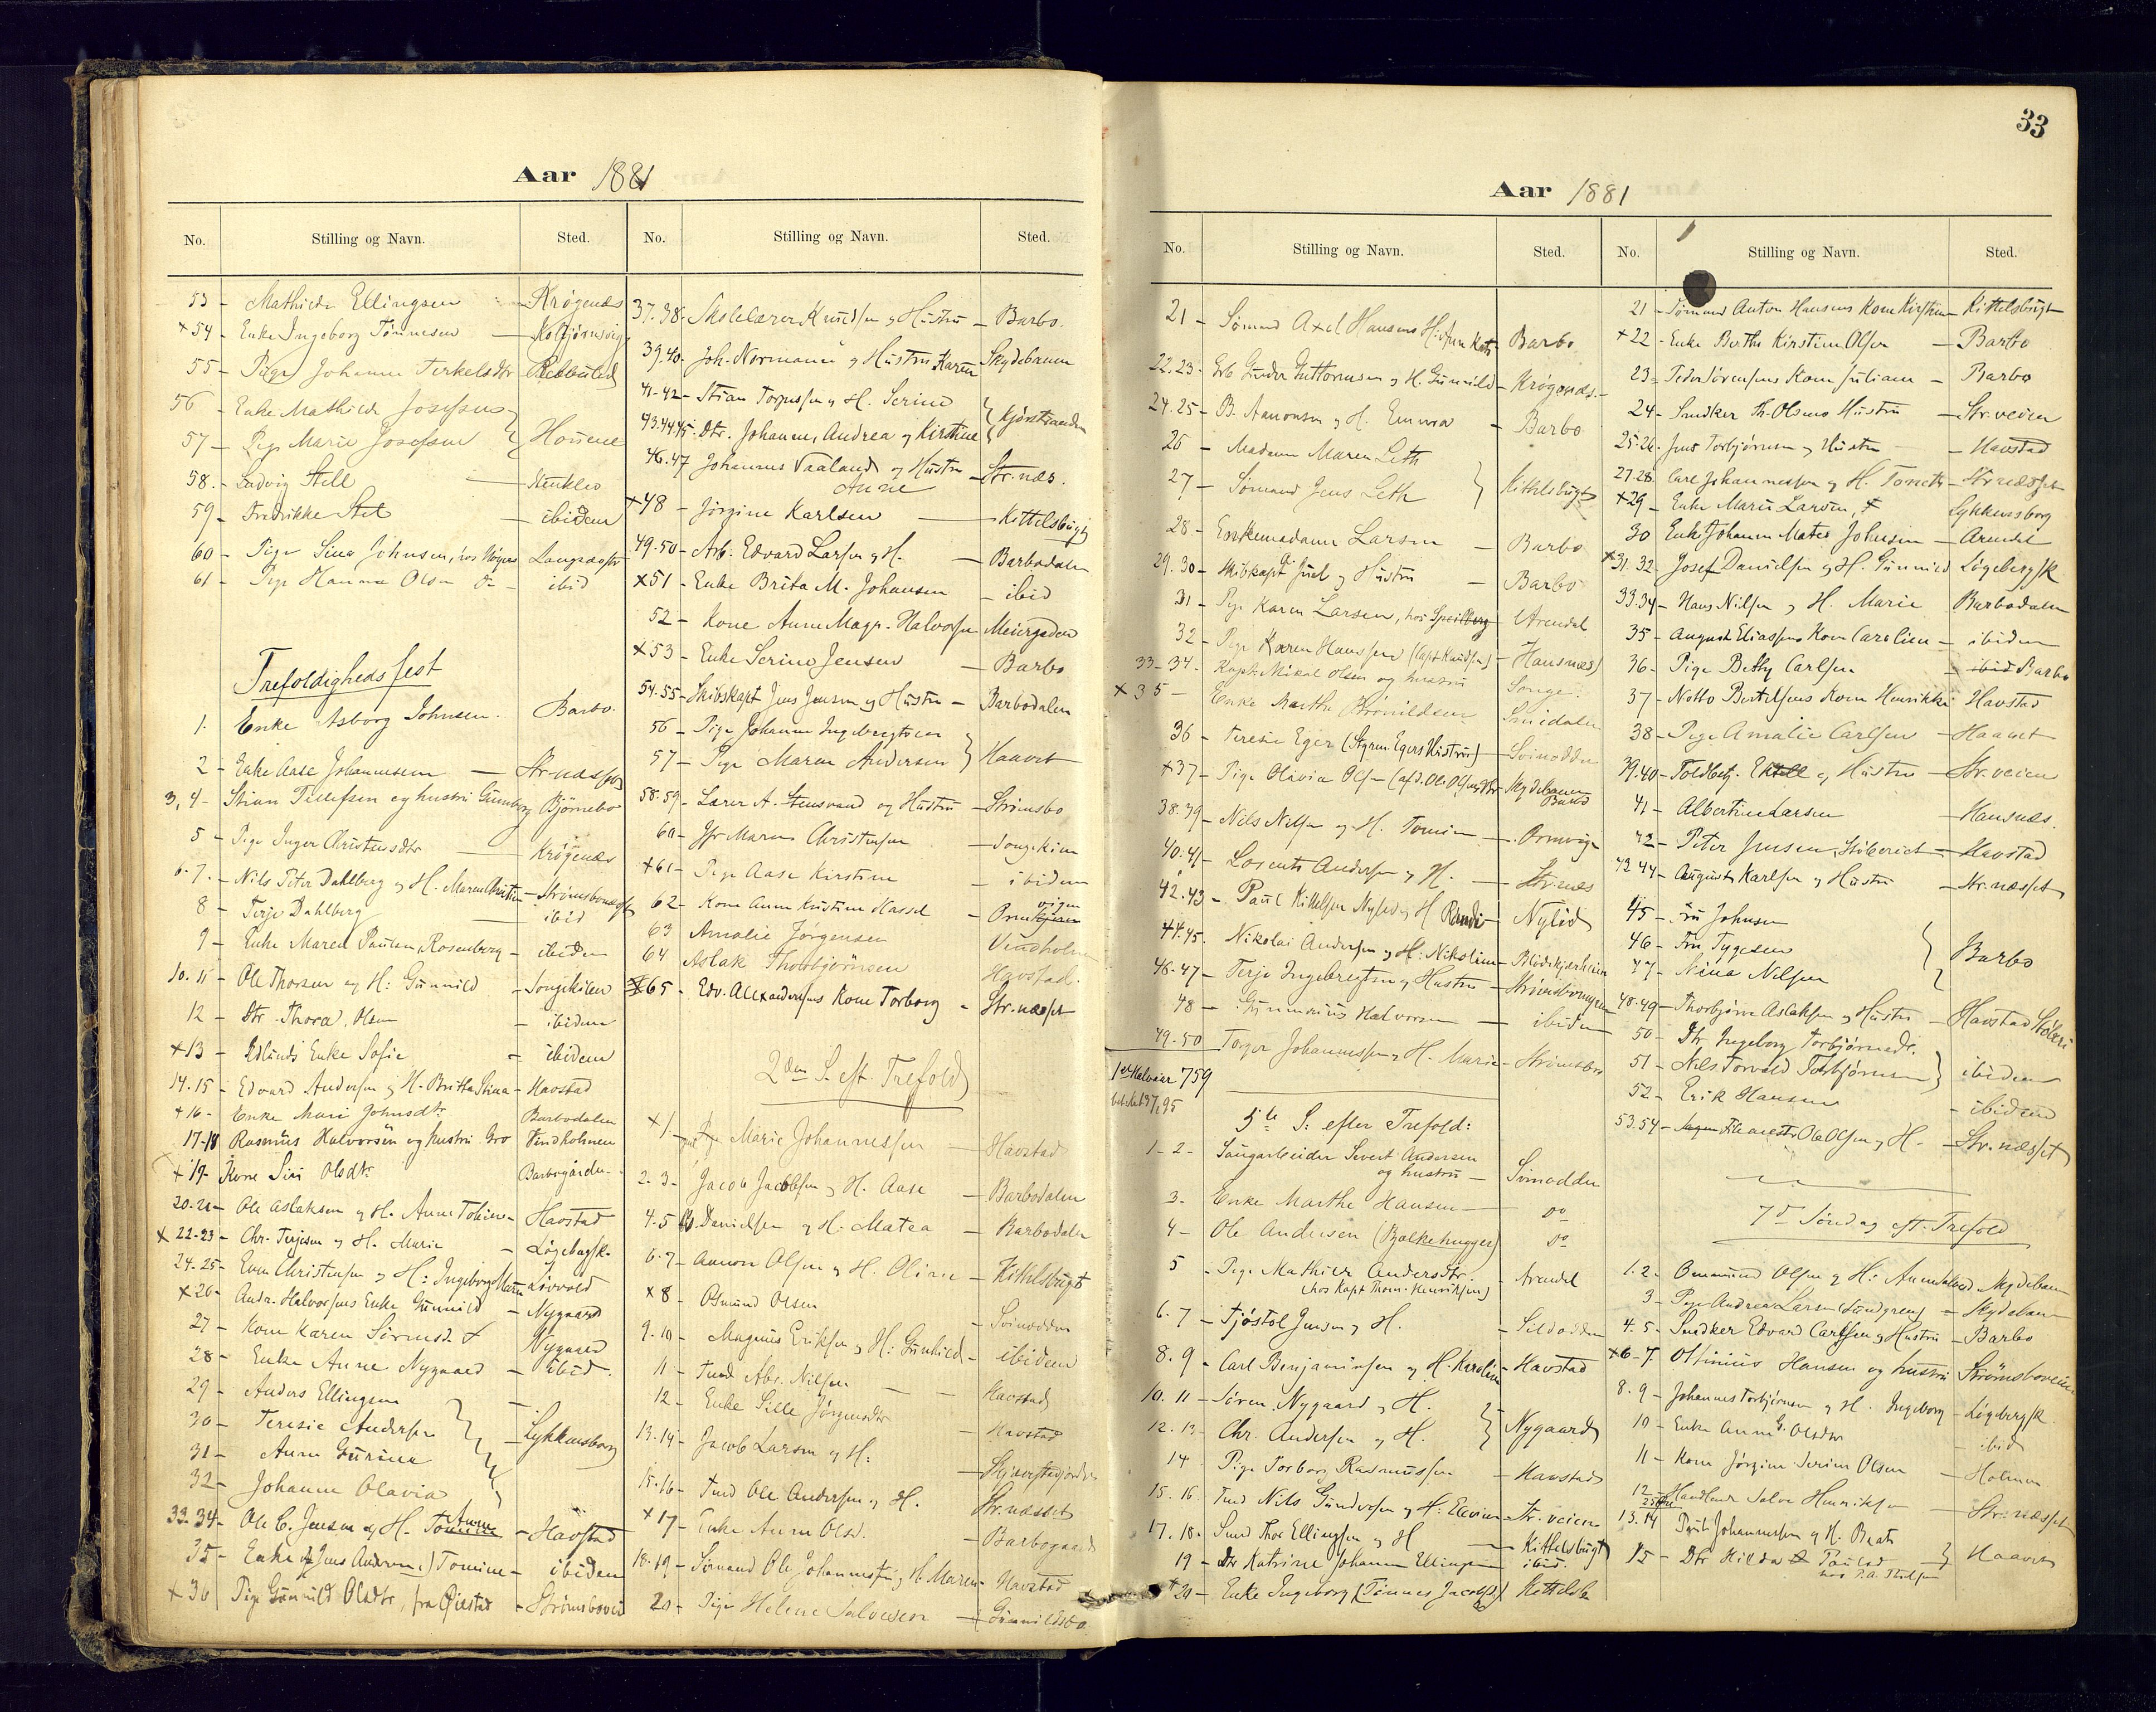 Aar 1881
No. Stilling og Navn. Sted.
53 - Mathilde Ellingsen - Krøgenæs
+54 - Enke Ingeborg Tønnesen - Kolbjørnsvig
55 - Pige Johanne Terkelsdtr
56 - Enke Mathilde Josefsens
57 - Pige Marie Josefsen
58 - Ludvig Stell
59 - Fredrikke Stel - ibidem
60 - Pige Sina Johnsen, hos
61 - Pige Hanna Olsen do - ibid
Trefoldigheds fest
1. Enke Asborg Johnsen. Barbo.
2 - Enke Aase Johannesen
3, 4 - Stian Tellefsen og hustri Gunnborg Bjørnebo
5 - Pige Inger Christensdtr - Krøgenæs
6-7. - Nils Peter Dahlberg og H. Maren
8 - Terje Dahlberg - ibid
9 - Enke Maren Paulen, Rosenberg - ibidem
10. 11 - Ole Thorsen og H: Gunnild - Songekilen
12 - Dtr. Thora Olsen - ibidem
+13 - Enke Sofie - ibidem
14.15 - Edvard Andersen og H. Britta Stina - Havstad
+16 - Enke Mari Johnsdtr Barbodalen
17-18 Rasmus Halvorsen og hustri Gro Vindholmen
+19 - Kone Siri Olsdtr Barbogården
20-21 - Ole Aslaksen og H. Anne Tobine - Havstad
+22-23 - Chr. Terjesen og H. Marie - Løgebergsk.
24-25 - Even Christensen og H: Ingeborg Marie - Løvold
+26 - Andr. Halvorsens Enke Gunnild - Nygaard
27 - Kone Karen Nygaard
28 - Enke Anne Nygaard - ibid.
29 - Anders Ellingsen
30 - Teresie Andersen - Lykkensborg
31 - Anne Gurine
32 - Johanne Olavia
33-34 - Ole C. Jensen og H. Anne - Havstad
35 - Enke (Jens Andersens) Tomine - ibidem
+36 Pige Gunnild Olsdtr, fra Øiestad - Strømsboveien
No. Stilling og Navn. Sted.
37-38 - Skolelærer Knudsen og Hustru - Barbo.
39.40 - Joh. Normann og Hustru Karen Skydebanen
41-42 - Stian Torjussen og H. Serine
43.44.45 - Dtr. Johanne, Andrea og Kirstine
46.47 Johannes Vaaland og Hustru - Str.næs.
Anne
+48 - Jørgine Karlsen - Kittelsbugt
49.50 - Arb. Edvard Larsen og H. - Barbodalen
+51 - Enke Brita M. Johansen - ibid
52 - Kone Anne Magr. Halvorsen Meiergaden
+53 - Enke Serine Jensen - Barbo
54-55 - Skibskapt Jens Jensen og Hustru - Barbodalen
56 - Pige Johanne Ingebregtsen
57 - Pige Maren Andersen Haavet
58-59 - Lærer A. Stensvand og Hustru - Strømsbo
60 - Jfr Maren Christensen - Songekilen
+61 - Pige Aase Kirstine - ibidem
62 - Kone Anne Kristine Hassel
63 Amalie Jørgensen Vindholm
64 Aslak Thorbjørnsen Havstad.
+65 - Edv. Alexandersens Kone Torborg - Str.næsset
2den S. eft. Trefold
+1 - Marie Johannessen - Havstad
2-3 - Jacob Jacobsen og H. Aase - Barbodalen
4-5 Danielsen og H. Matea - Barbodalen
6-7 - Aanon Olsen og H. Oline - Kittelsbugt
+8 - Osmund Olsen - Svinodden
9.10 - Magnus Eriksen og H: Gunhild - ibidem
11 - Tmd Abr. Nilsen - Havstad
12 - Enke Sille Jørgensdtr - Havstad
13.14 - Jacob Larsen og H:
15.16 - Tmd Ole Andersen og H. Str.næsset
+17 - Enke Anne Olsd. - Barbogaard
18.19 - Sømand Ole Johannesen og H. Maren - Havstad
20 - Pige Helene Salvesen - Gunnildsbo
33
Aar 1881
No. Stilling og Navn. Sted.
21 - Sømand Axel Hansens H. - Barbo
22.23 - Arb Gunder Guttormsen og H. Gunnild - Krøgenæs.
24.25 - B. Aanonsen og H. Emma - Barbo
26 - Madame Maren Leth
27 - Sømand Jens Leth Kittelsbugt
28 - Enkemadame Larsen - Barbo
29.30 - Skibskapt Juel og Hustru - Barbo
31 - Pige Karen Larsen, hos Arendal
32 - Pige Karen Hanssen (Capt Knudsen) - Hansnæs
33-34 - Kapt. Mikal Olsen og hustru Songe.
+35 - Enke Marthe Smidalen
36 - Teresie Eger (Styrm. Egers Hustru) - Svinodden
+37 - Pige Olivia Olsen (afd. Ole Olsens Dtr) Skydebanen Barbo
38.39 - Nils Nilsen og H. Tomine - Ormvigen
40.41 - Lorents Andersen og H. - Str.næs
42.43 - Paul Kittelsen og H Randi - Nylid
44.45. Nikolai Andersen og H: Nikoline - Blødekjærheien
46-47 - Terje Ingebregtsen og Hustru
48 - Gunnerius Halvorsen - ibidem
49.50 Tarjer Johannessen og H. Marie - Strømsbro
1ste Halvaar 759
5te S: efter Trefold:
1-2 - Saugarbeider Sivert Andersen
og hustru - Svinodden
3. - Enke Marthe Hansen - do
4 - Ole Andersen (Bjælkehugger) do
5 - Pige Mathilde Andersdtr. Arendal
(hos Kapt Thom. Henriksen)
6. 7 - Tjøstøl Jensen og H. - Sildodden
8. 9 - Carl Benjaminsen og H. Karoline - Havstad
10. 11 - Søren Nygaard og H.
12. 13 - Chr. Andersen og H. Nygaard
14 Pige Torborg Rasmussen - Havstad
15. 16. Tmd Nils Gundersen og H: - Str.veien
17. 18. - Smd Thor Ellingsen og H - Kittelsbugt
19 - Dtr Katrine Johanne Ellingsen ibid.
+20 - Enke Ingeborg (Tønnes Jacobs.) Kittelsb
No. Stilling og Navn. Sted.
21 - Sømand Anton Hansens Kone Kirstine - Kittelsbugt
+22 - Enke Berthe Kirstine Olsen - Barbo
23 - Peder Sørensens Kone Juliane - Barbo
24 - Snedker Th. Olsens Hustru - Str.veien
25-26 - Jens Torbjørnsen og Hustru - Havstad
27.28. Carl Johannessen og H. Tomette - Str.nædset
+29 - Enke Marie Larsen, Lykkensborg
30 Enke Johanne Matea Johnsen - Arendal
+31. 32 - Josef Danielsen og H. Gunnild Løgebergsk
33.34 - Hans Nilsen og H. Marie Barbodalen
35 - August Eliassens Kone Caroline - ibidem
36 - Pige Bethy Carlsen - ibid Barbo
37 - Notto Bertelsens Kone Henrikke Havstad
38 - Pige Amalie Carlsen - Haavet
39.40 - Toldbetj. og Hustru - Str.veien
41 - Albertine Larsen - Hansnæs.
42 - Peter Jensen, - Havstad
43 44 - August Karlsen og Hustru - Str.næsset
45 - Fru Johnsen
46 - Fru Tygesen
47 - Nina Nilsen Barbo
48-49 - Thorbjørn Aslaksen og Hustru - Havstad
50 - Dtr. Ingeborg Torbjørnsdtr.
51 - Nils Torvald Torbjørnsen ibidem
52 - Erik Hansen - ibidem
53.54 - Ole Olsen og H. - Str.næsset
7de Søndag eft. Trefold
1. 2 - Osmund Olsen og H: Skydeban
3 - Pige Andrea Larsen (Lundgreen) - Skydeban
4. 5 - Snedker Edvard Carlsen og Hustru - Barbo
+6-7 Ottinius Hansen og hustru Strømsboveien
8. 9 - Johannes Torbjørnsen og H. Ingeborg - Løgebergsk.
10 - Enke Anne G. Olsdtr - ibid
11 - Kone Jørgine Serine Olsen - Holmen
12 - Handlende Salve Henriksen - Str.næsset
13.14 Johannessen og H. Berte
15 - Dtr Hilda Haavet